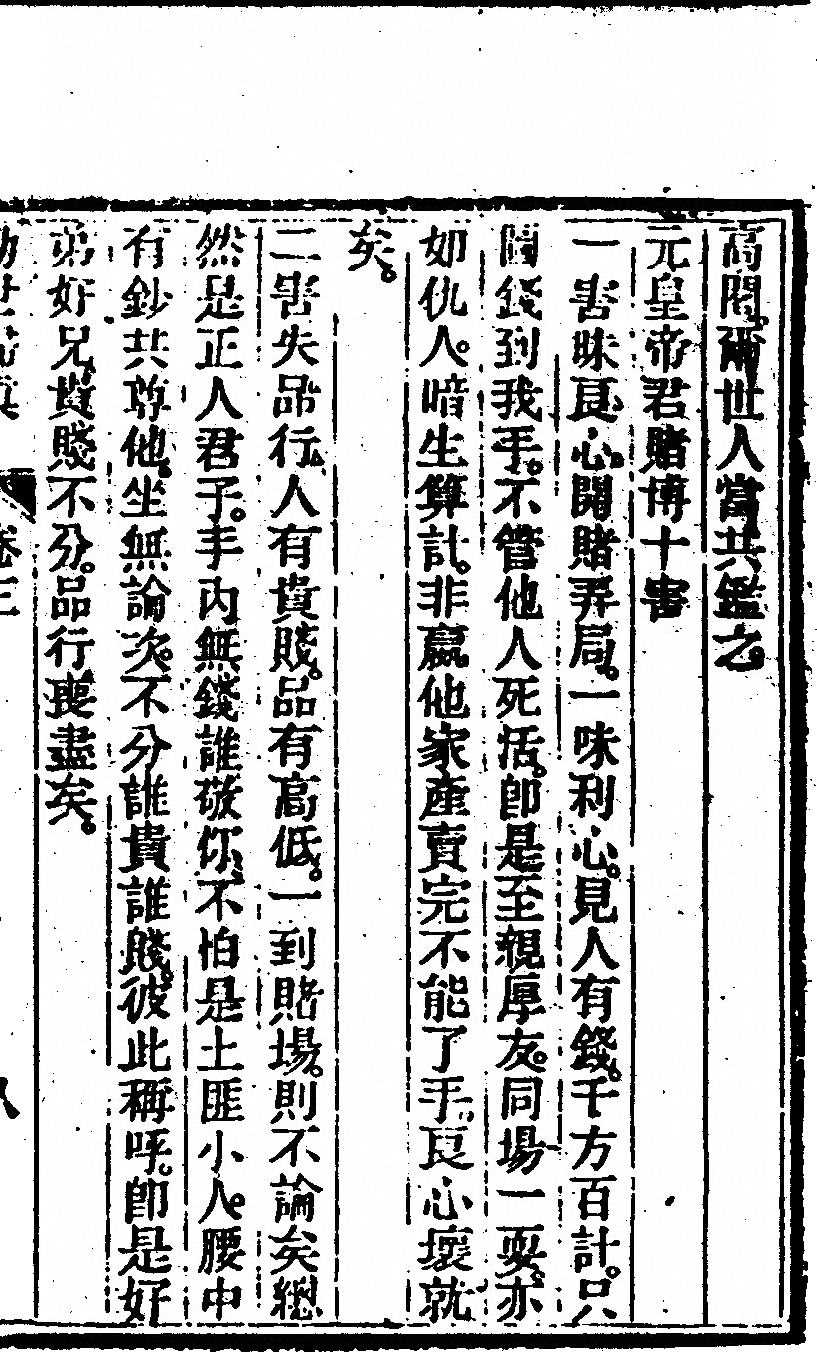 高閣。爾世人當共鑑之。
元皇帝君賭博十害
一害昧良心。開賭弄局。一味利心。見人有錢。千方百計。只
圖錢到我手。不管他人死活。卽是至親厚友。同場一耍。亦
如仇人。暗生算計。非嬴他家產賣完不能了手。良心壞就
矣。
二害失品行。人有貴賤。品有高低。一到賭場。則不論矣。總
然是正人君子。手內無錢誰敬你。不怕是土匪小人。腰中
有鈔共尊他。坐無論次。不分誰貴誰賤。彼此稱呼。卽是好
弟好兄。貴賤不分。品行喪盡矣。
卷三
八